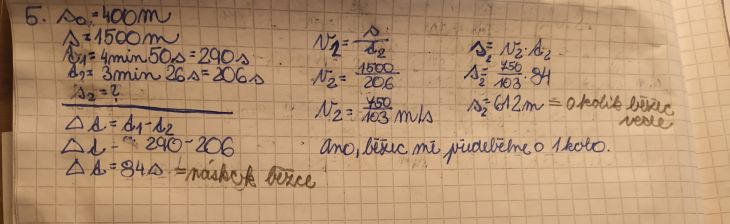 5. s₀ = 400 m
s = 1500 m
t₁ = 4 min 50 s = 290 s
t₂ = 3 min 26 s = 206 s
s₂ = ?
Δt = t₁ - t₂
Δt = 290 - 206
Δt = 84 s = náskok běžce
v₂ = s/t₂
v₂ = 1500/206
v₂ = 750/103 m/s
s₂ = v₂ · t₂
s₂ = 750/103 · 84
s₂ = 612 m = o kolik běžec vede
Ano, běžec mě předběhne o 1 kolo.